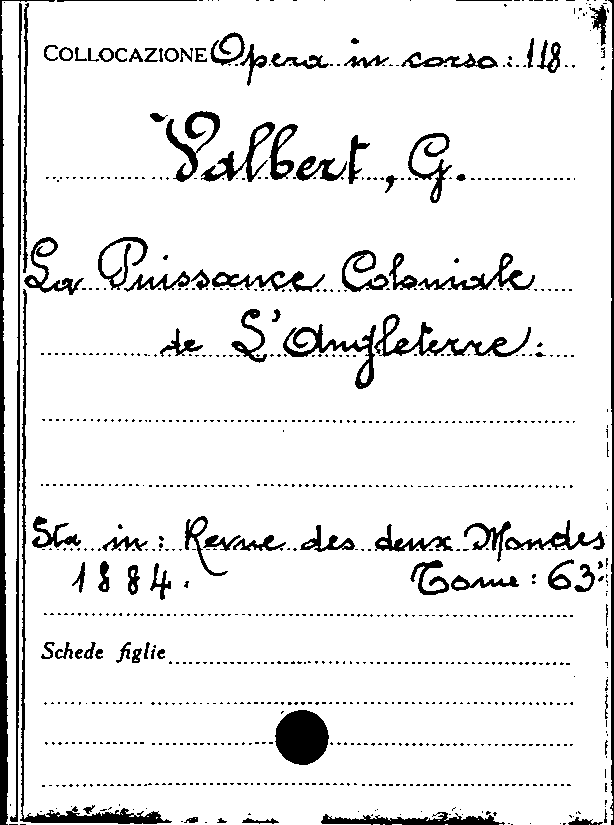 COLLOCAZIONE Opera in corso: 118
Valbert, G.
La Puissance Coloniale
de L'Angleterre.
Sta in: Revue des deux Mondes
1884. Tome: 63°
Schede figlie